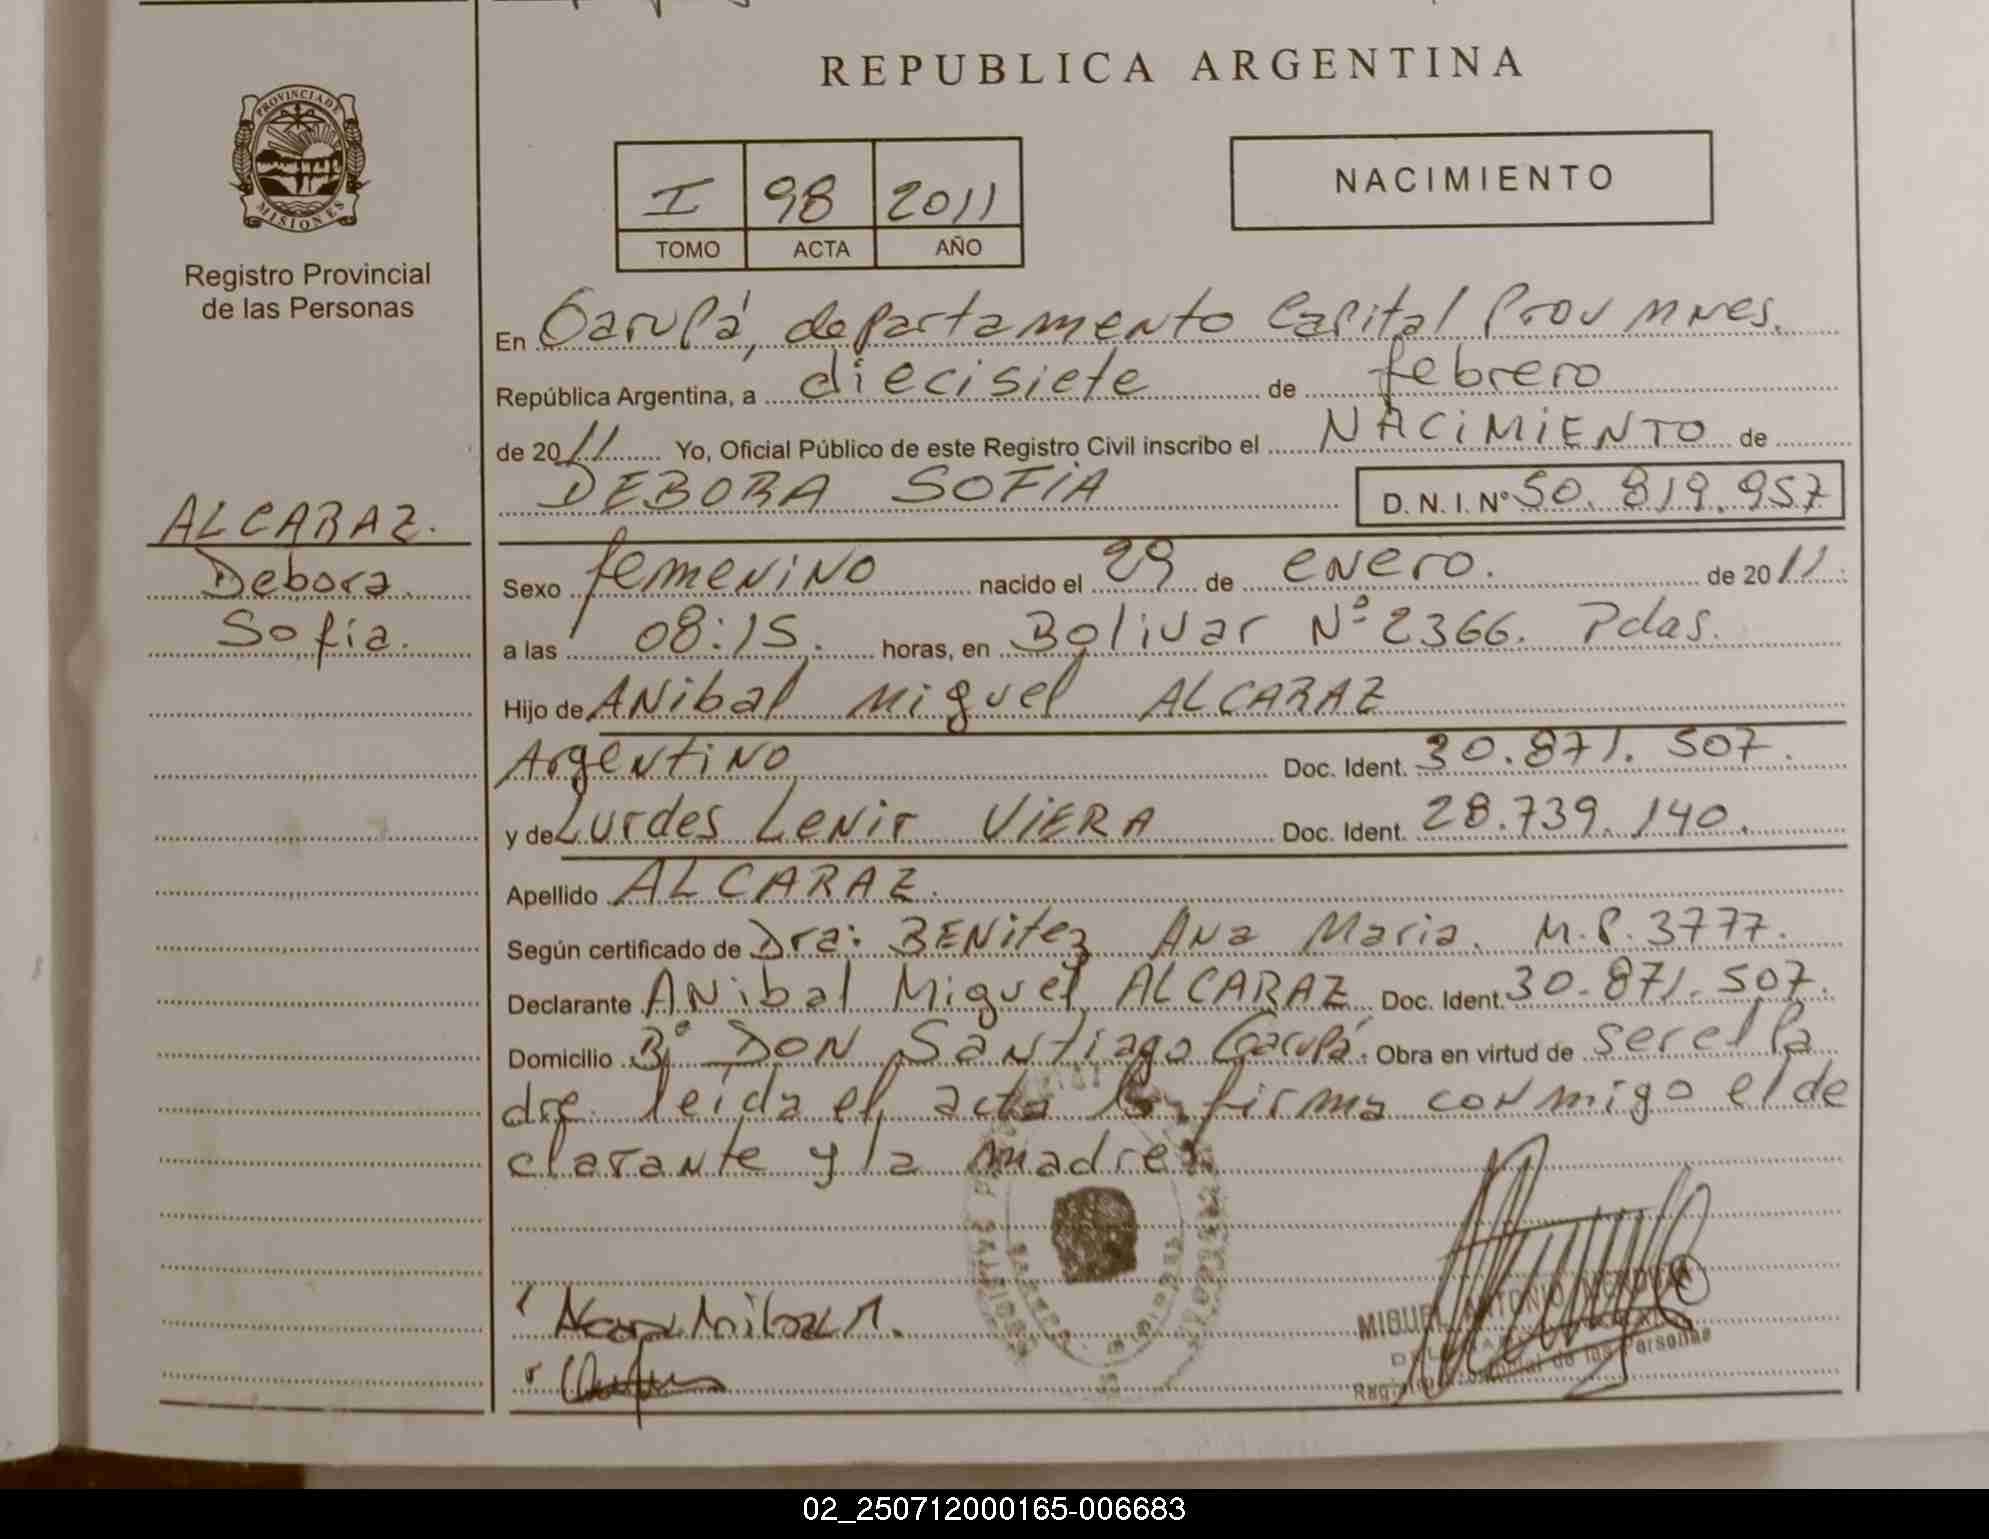 REPUBLICA ARGENTINA
PROVINCIA DE
MISIONES
Registro Provincial
de las Personas
I 98 2011
TOMO ACTA AÑO
NACIMIENTO
En Garupá, departamento Capital Prov Mnes.
República Argentina, a diecisiete de febrero
de 2011 Yo, Oficial Público de este Registro Civil inscribo el NACIMIENTO de
DEBORA SOFIA D. N. I. Nº 50.819.957
ALCARAZ.
Debora
Sofia.
Sexo femenino nacido el 29 de enero. de 2011
a las 08:15. horas, en Bolivar Nº 2366. Pdas.
Hijo de ANibal Miguel ALCARAZ
Argentino Doc. Ident. 30.871.507.
y de Lurdes Lenir VIERA Doc. Ident. 28.739.140.
Apellido ALCARAZ.
Según certificado de Dra: BENitez Ana Maria. M.P. 3777.
Declarante ANibal Miguel ALCARAZ Doc. Ident. 30.871.507.
Domicilio Bº DON Santiago Garupá. Obra en virtud de ser el Pa
dre leida el acta la firma conmigo el de
clarante y la madre
MIGUEL ANTONIO
de las Personas
02_250712000165-006683